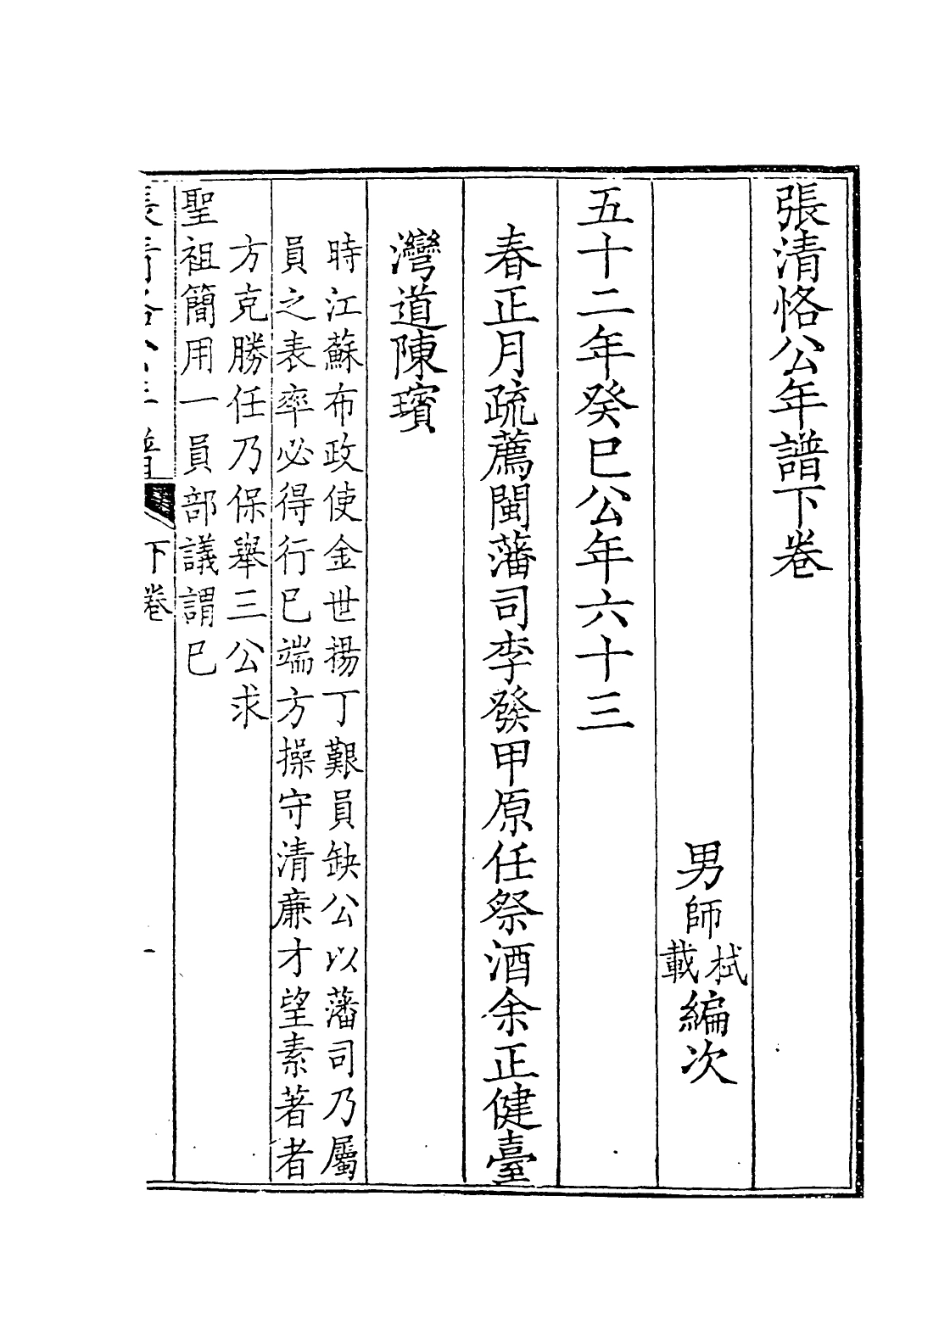 張清恪公年譜下卷
男師栻載編次
五十二年癸巳公年六十三
春正月疏薦閩藩司李發甲原任祭酒余正健臺
灣道陳璸
時江蘇布政使金世揚丁艱員缺公以藩司乃屬
員之表率必得行己端方操守清廉才望素著者
方克勝任乃保舉三公求
聖祖簡用一員部議謂已
張清恪公年譜
下卷
一